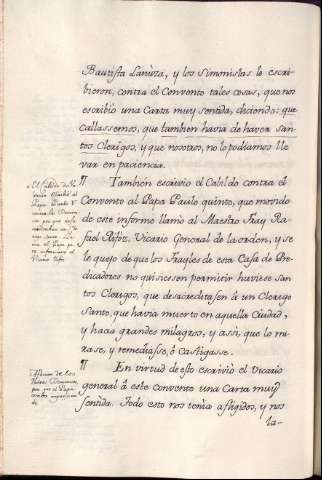 Bautista Lanúza, y los Simonistas le escri-
bieron, contra el Convento tales cosas, que nos
escribió una Carta muy sentida, diciendo: que
callassemos, que tambien havia de haver san-
tos Clerigos, y que nosotros, no lo podiamos lle
var en paciencia.
¶ Tambien escrivio el Cabildo contra el
Convento al Papa Paulo quinto, que movido
de este informe llamo al Maestro Fray Ra-
fael Rifóz, Vicario General de la orden, y se
le quejo de que los Frayles de esta Casa de Pre-
dicadores no quisiessen permitir huviese san
tos Clerigos, que desacreditasen à un Clerigo
Santo, que havia muerto en aquella Ciudad,
y hacia grandes milagros, y assi, que lo mi-
rase, y remediasse, ó castigasse.
¶ En virtud de esto escrivió el Vicario
general à este convento una Carta muy
sentida. Todo esto nos tenia afligidos, y nos
la-
El Cabildo de Va
lencia
Papa Paulo V
contra el Conven
to